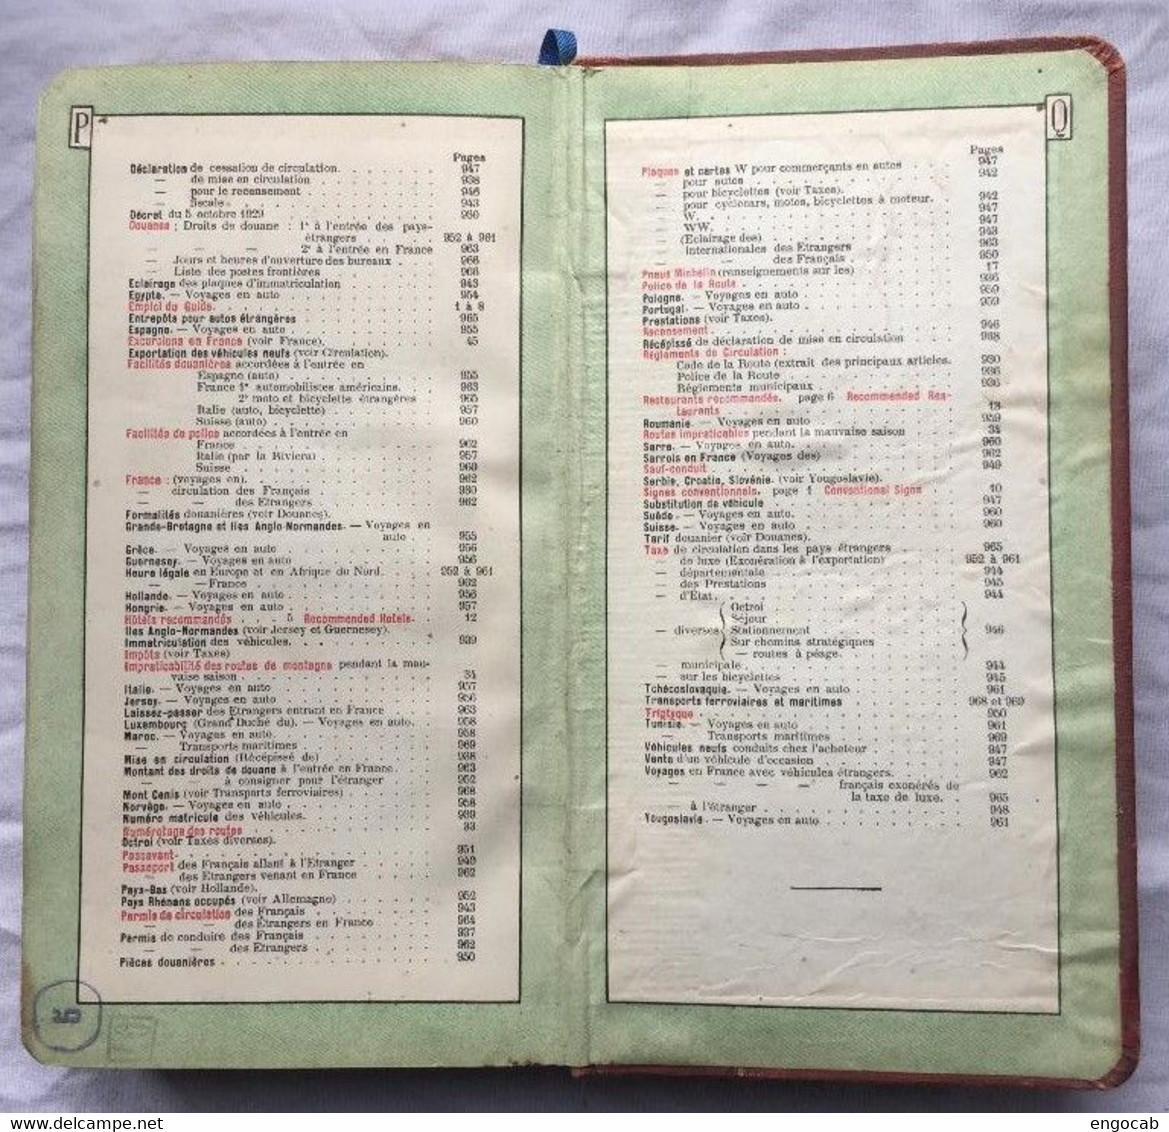 P
Pages
Déclaration de cessation de circulation. 947
— de mise en circulation 938
— pour le recensement 946
— fiscale 943
Décret du 5 octobre 1929 930
Douanes ; Droits de douane : 1° à l'entrée des pays
étrangers 952 à 961
— — — 2° à l'entrée en France 963
— Jours et heures d'ouverture des bureaux 968
— Liste des postes frontières 968
Eclairage des plaques d'immatriculation 943
Egypte. — Voyages en auto 954
Emploi du Guide. 1 à 8
Entrepôts pour autos étrangères 965
Espagne. — Voyages en auto 955
Excursions en France (voir France). 45
Exportation des véhicules neufs (voir Circulation).
Facilités douanières accordées à l'entrée en
Espagne (auto) 955
France 1° automobilistes américains. 963
2° moto et bicyclette étrangères 965
Italie (auto, bicyclette) 957
Suisse (auto) 960
Facilités de police accordées à l'entrée en
France 962
Italie (par la Riviera) 957
Suisse 960
France : (voyages en). 962
— circulation des Français 930
— — des Etrangers 962
Formalités douanières (voir Douanes).
Grande-Bretagne et Iles Anglo-Normandes. — Voyages en
auto 955
Grèce. — Voyages en auto 956
Guernesey. — Voyages en auto 956
Heure légale en Europe et en Afrique du Nord. 952 à 961
— — France 962
Hollande. — Voyages en auto 956
Hongrie. — Voyages en auto 957
Hôtels recommandés 5 Recommended Hotels. 12
Iles Anglo-Normandes (voir Jersey et Guernesey).
Immatriculation des véhicules. 939
Impôts (voir Taxes)
Impraticabilité des routes de montagne pendant la mau-
vaise saison 34
Italie. — Voyages en auto 957
Jersey. — Voyages en auto 956
Laissez-passer des Etrangers entrant en France 963
Luxembourg (Grand Duché du). — Voyages en auto. 958
Maroc. — Voyages en auto. 958
— Transports maritimes 969
Mise en circulation (Récépissé de) 938
Montant des droits de douane à l'entrée en France. 963
— à consigner pour l'étranger 952
Mont Cenis (voir Transports ferroviaires) 968
Norvège. — Voyages en auto 958
Numéro matricule des véhicules. 939
Numérotage des routes 33
Octroi (voir Taxes diverses).
Passavant. 951
Passeport des Français allant à l'Etranger 949
— des Etrangers venant en France 962
Pays-Bas (voir Hollande).
Pays Rhénans occupés (voir Allemagne) 952
Permis de circulation des Français 943
— — des Etrangers en France 964
Permis de conduire des Français 937
— — des Etrangers 962
Pièces douanières 950
5
Q
Pages
Plaques et cartes W pour commerçants en autos 947
— pour autos 942
— pour bicyclettes (voir Taxes).
— pour cyclecars, motos, bicyclettes à moteur. 942
— W. 947
— WW. 947
— (Eclairage des) 943
— internationales des Etrangers 963
— — des Français 950
Pneus Michelin (renseignements sur les) 17
Police de la Route 936
Pologne. — Voyages en auto 959
Portugal. — Voyages en auto 959
Prestations (voir Taxes).
Recensement. 946
Récépissé de déclaration de mise en circulation 938
Règlements de Circulation :
Code de la Route (extrait des principaux articles. 930
Police de la Route 936
Règlements municipaux 936
Restaurants recommandés. page 6 Recommended Res-
taurants 13
Roumanie. — Voyages en auto 959
Routes impraticables pendant la mauvaise saison 34
Sarre. — Voyages en auto. 960
Sarrois en France (Voyages des) 962
Sauf-conduit 949
Serbie, Croatie, Slovénie. (voir Yougoslavie).
Signes conventionnels. page 1 Conventional Signs 10
Substitution de véhicule 947
Suède. — Voyages en auto. 960
Suisse. — Voyages en auto. 960
Tarif douanier (voir Douanes).
Taxe de circulation dans les pays étrangers 965
— de luxe (Exonération à l'exportation) 952 à 961
— départementale 944
— des Prestations 945
— d'Etat. 944
Octroi
Séjour
— diverses Stationnement 946
Sur chemins stratégiques
— routes à péage.
— municipale. 944
— sur les bicyclettes 945
Tchécoslovaquie. — Voyages en auto 961
Transports ferroviaires et maritimes 968 et 969
Triptyque 950
Tunisie. — Voyages en auto 961
— Transports maritimes 969
Véhicules neufs conduits chez l'acheteur 947
Vente d'un véhicule d'occasion 947
Voyages en France avec véhicules étrangers. 962
— — — — français exonérés de
la taxe de luxe. 965
— à l'étranger 948
Yougoslavie. — Voyages en auto 961
engocab